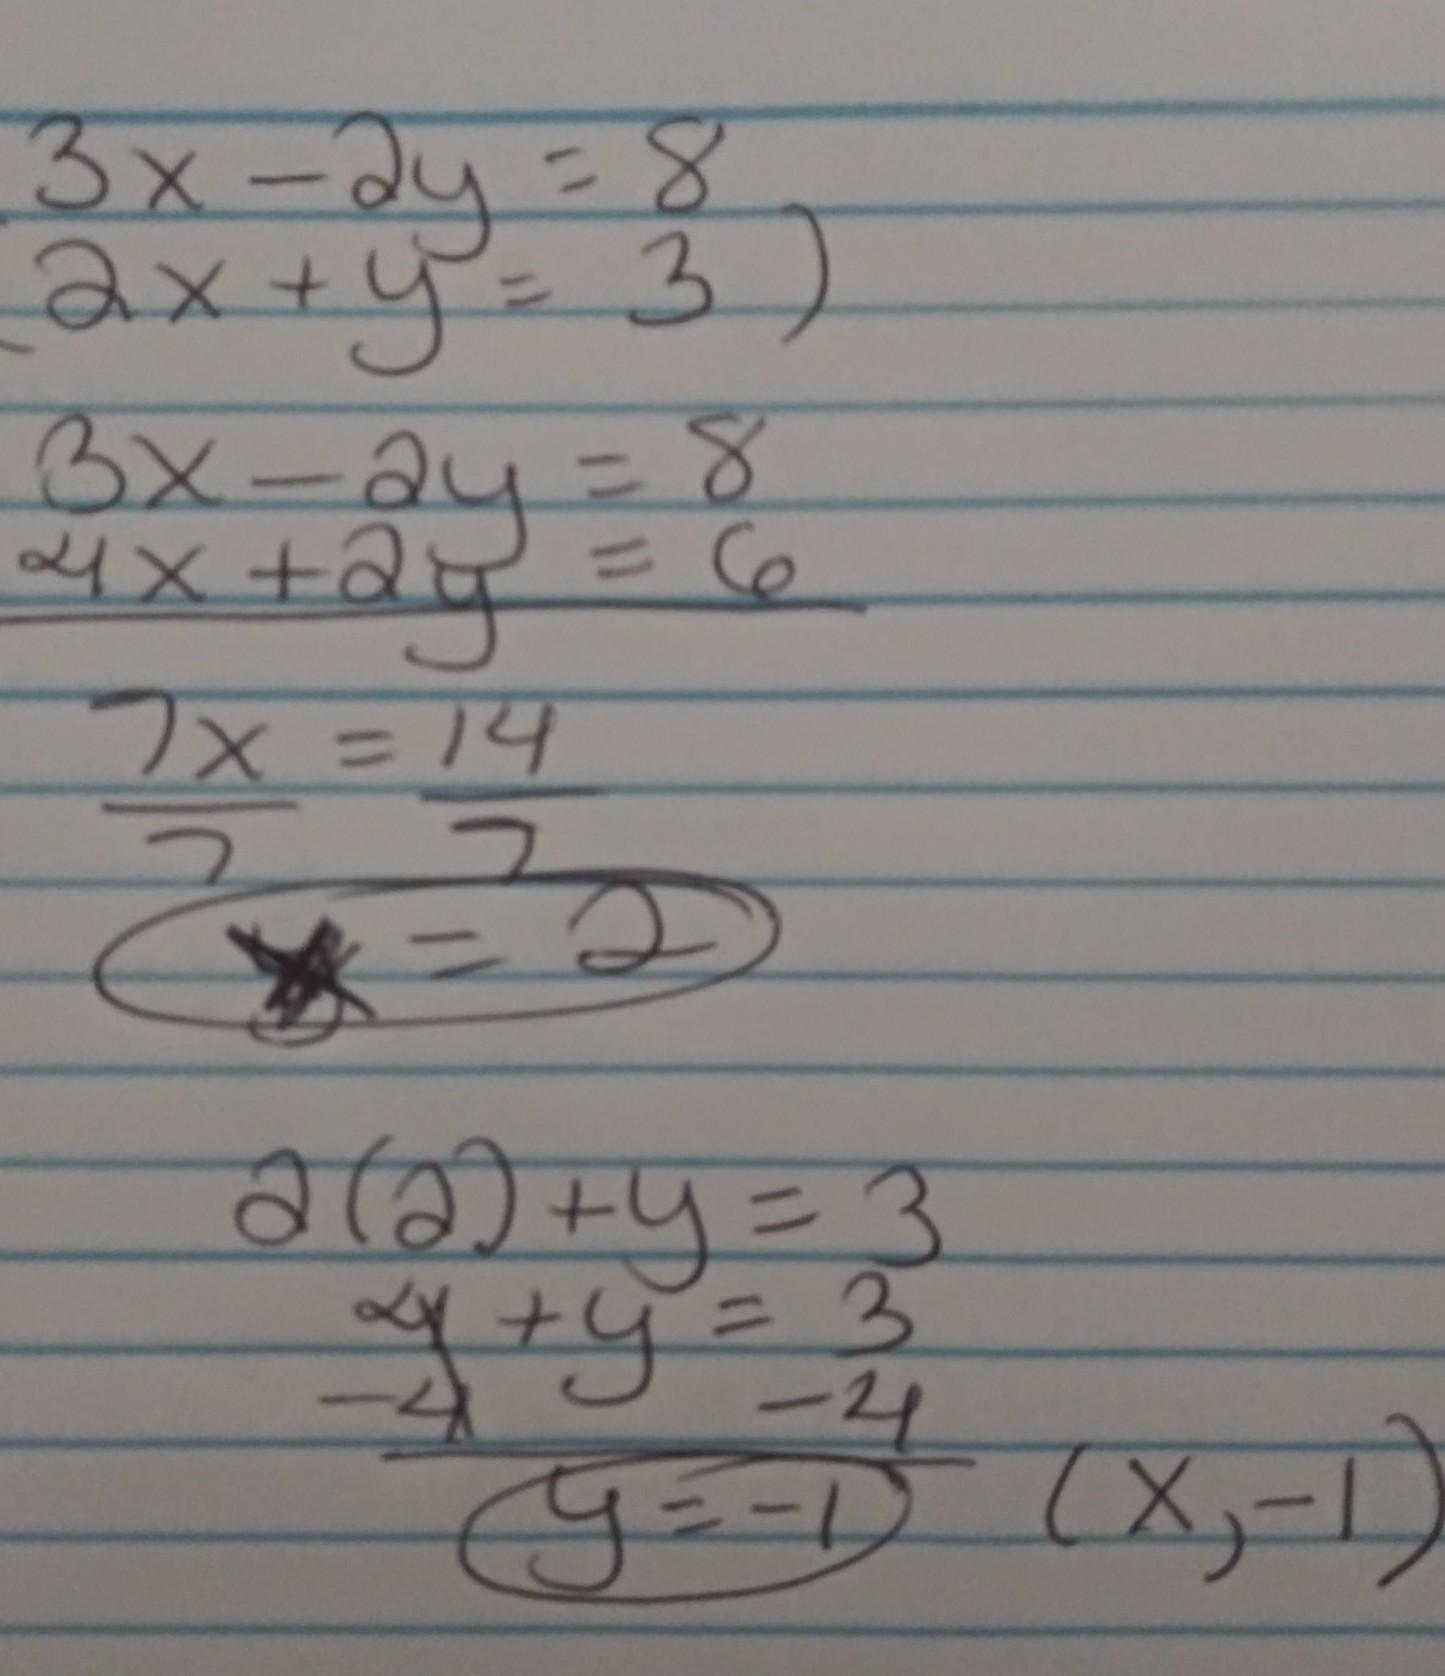 3x - 2y = 8
(2x + y = 3)
3x - 2y = 8
4x + 2y = 6
7x = 14
7 7
x = 2
2(2) + y = 3
4 + y = 3
-4 -4
y = -1 (x, -1)